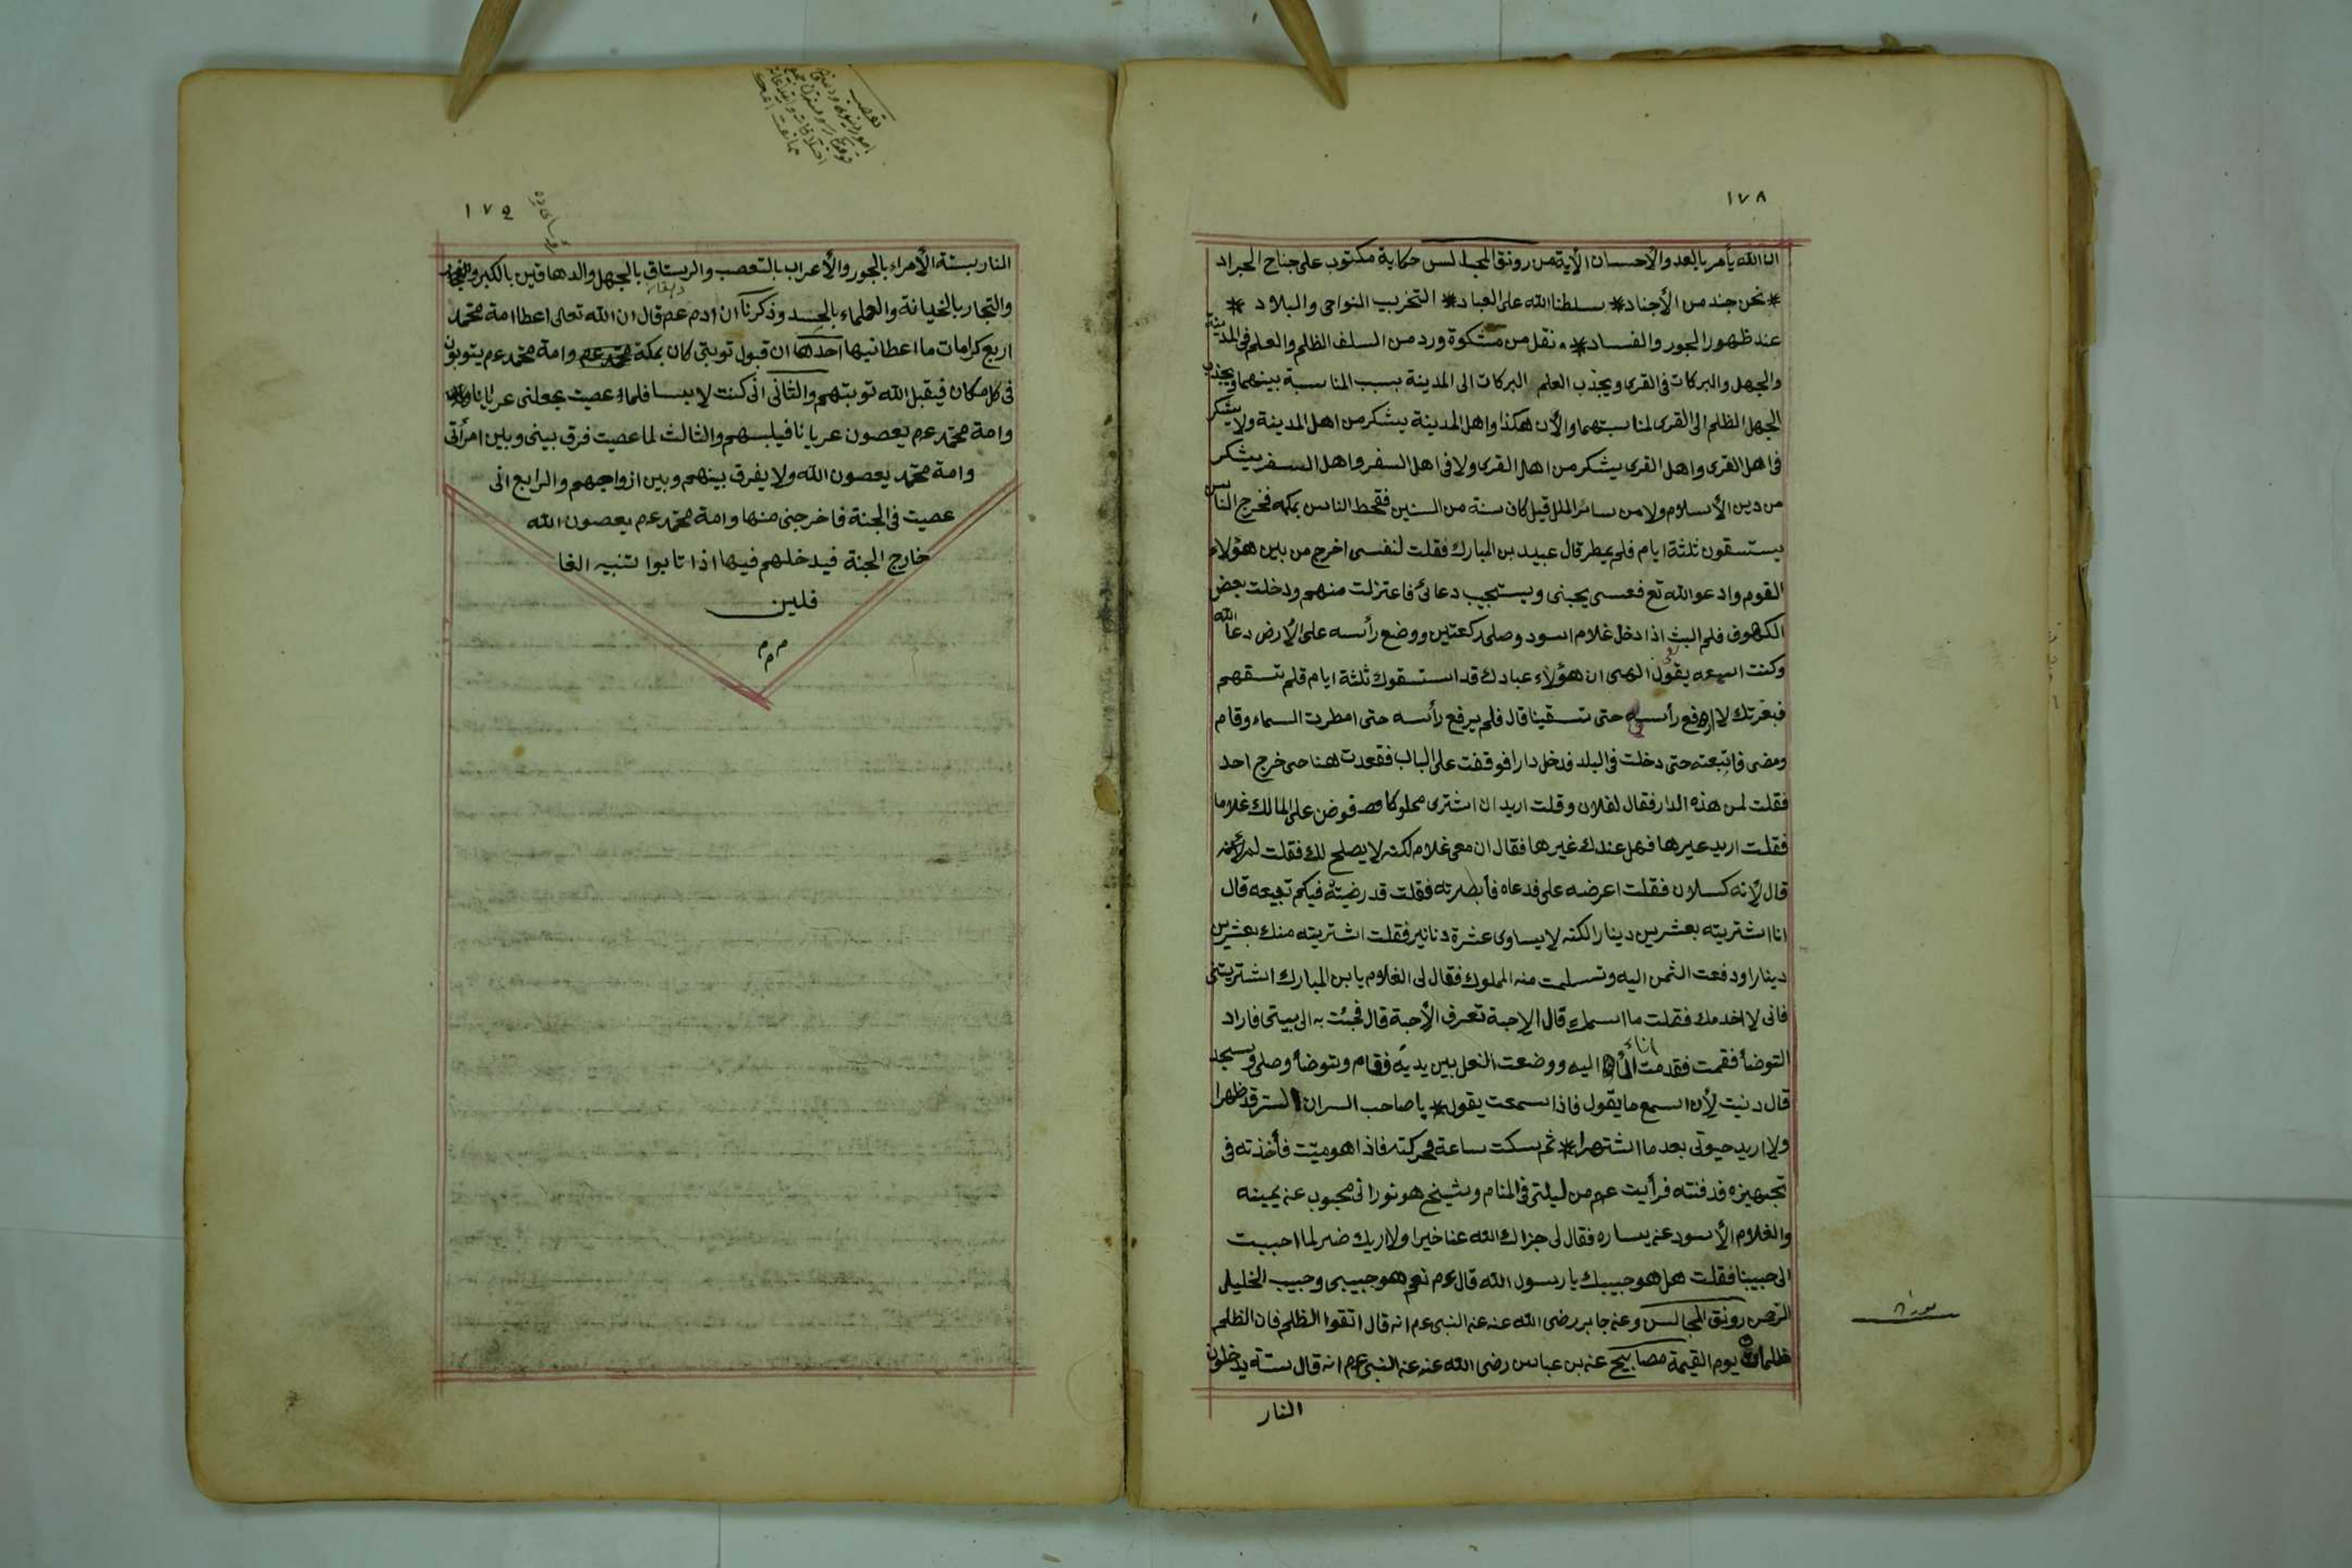 ١٧٨
ان الله يأمر بالعدو والأحسان الأية من رونق المجالس حكاية مكتوب على جناح الجراد
* نحن جند من الأجناد * سلطنا الله على العباد * التخريب النواحى والبلاد *
عند ظهور الجور والفساد * نقل من مشكوة ورد من السلف الظلم والعلم فى المدينة
والجهل والبركات فى القرى ويجذب العلم البركات الى المدينة بسبب المناسبة بينهما ويجذب
الجهل الظلم الى القرى لمناسبتهما والأن هكذا واهل المدينة يشكر من اهل المدينة ولا يشكر
فى اهل القرى واهل القرى يشكر من اهل القرى ولا فى اهل السفر واهل السفر يشكر
من دين الأسلام ولا من سائر الملل قيل كان سنة من السنين فقحط الناس بمكه فخرج الناس
يستسقون ثلثة ايام فلم يمطر قال عبيد بن المبارك فقلت لنفسى اخرج من بين هؤلاء
القوم وادعو الله تع فعسى يجبنى ويستجيب دعائى فاعتزلت منهم ودخلت بعض
الكهوف فلم البث اذا دخل غلام اسود وصلى ركعتين ووضع رأسه على الأرض دعا الله
وكنت اسمعه يقول الهى ان هؤلاء عبادك قد استسقوك ثلثة ايام فلم تسقهم
فبعزتك لا ارفع رأسى حتى تسقينا قال فلم يرفع رأسه حتى امطرت السماء وقام
ومضى فاتبعته حتى دخلت فى البلد فدخل دارا فوقفت على الباب فقعدت هنا حتى خرج احد
فقلت لمن هذه الدار فقال لفلان وقلت اريد ان اشترى مملوكا فعرض على المالك غلاما
فقلت اريد غيرها فهل عندك غيرها فقال ان معى غلام لكنه لا يصلح لك فقلت لم
قال لأنه كسلان فقلت اعرضه على فدعاه فأبصرته فقلت قد رضيته فبكم تبيعه قال
انا اشتريته بعشرين دينارا لكنه لا يساوى عشرة دنانير فقلت اشتريته منك بعشرين
دينارا ودفعت الثمن اليه وتسلمت منه المملوك فقال لى الغلام يا بن المبارك اشتريتنى
فانى لا اخدمك فقلت ما اسمك قال الاحبة تعرف الأحبة قال فجئت به الى بيتى فاراد
التوضأ فقمت فقدمت اناء اليه ووضعت النعل بين يديه فقام وتوضأ وصلى وسجد
قال دنيت لأن اسمع ما يقول فاذا سمعت يقول * يا صاحب السر ان السر قد ظهرا
ولا اريد حيوتى بعد ما اشتهرا * ثم سكت ساعة فحركته فاذا هو ميت فأخذته فى
تجهيزه فدفنته فرأيت عم من ليلتى فى المنام وشيخ هو نورانى محبوب عن يمينه
والغلام الأسود عن يساره فقال لى جزاك الله عنا خيرا ولا اريك ضر لما احببت
الى حبيبنا فقلت هل هو حبيبك يا رسول الله قال عم نعم هو حبيبى وحبيب الخليل
رونق المجالس وعن جابر رضى الله عنه عن النبى عم انه قال اتقوا الظلم فان الظلم
ظلمات يوم القيمة مصابيح عن بن عباس رضى الله عنه عن النبى عم انه قال ستة يدخلون
النار
١٧٩
النار بستة الأمراء بالجور والأعراب بالتعصب والرستاق بالجهل والدهاقين بالكبر
والتجار بالخيانة والعلماء بالحسد وذكر ان ادم عم قال ان الله تعالى اعطا امة محمد
اربع كرامات ما اعطانيها احدها ان قبول توبتى كان بمكة وامة محمد عم يتوبون
فى كل مكان فيقبل الله توبتهم والثانى انى كنت لابسا فلما عصيت جعلنى عريانا
وامة محمد عم يعصون عريانا فيلبسهم والثالث لما عصيت فرق بينى وبين امرأتى
وامة محمد يعصون الله ولا يفرق بينهم وبين ازواجهم والرابع انى
عصيت فى الجنة فاخرجنى منها وامة محمد عم يعصون الله
خارج الجنة فيدخلهم فيها اذا تابوا تنبيه الغا
فلين
م م م